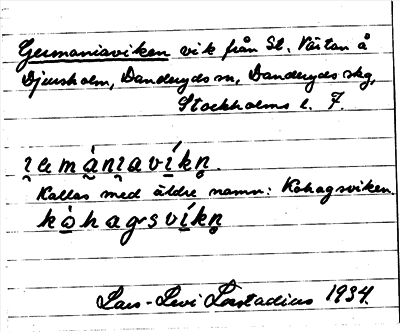 Germaniaviken vik från St. Västan å
Djursholm, Danderyds sn, Danderyds skg,
Stockholms l. 7.
ɪ̯ɛmàniavíkn̥.
Kallas med äldre namn: Kohagsviken.
kòhagsvíkn̥
Lars-Levi Læstadius 1934.